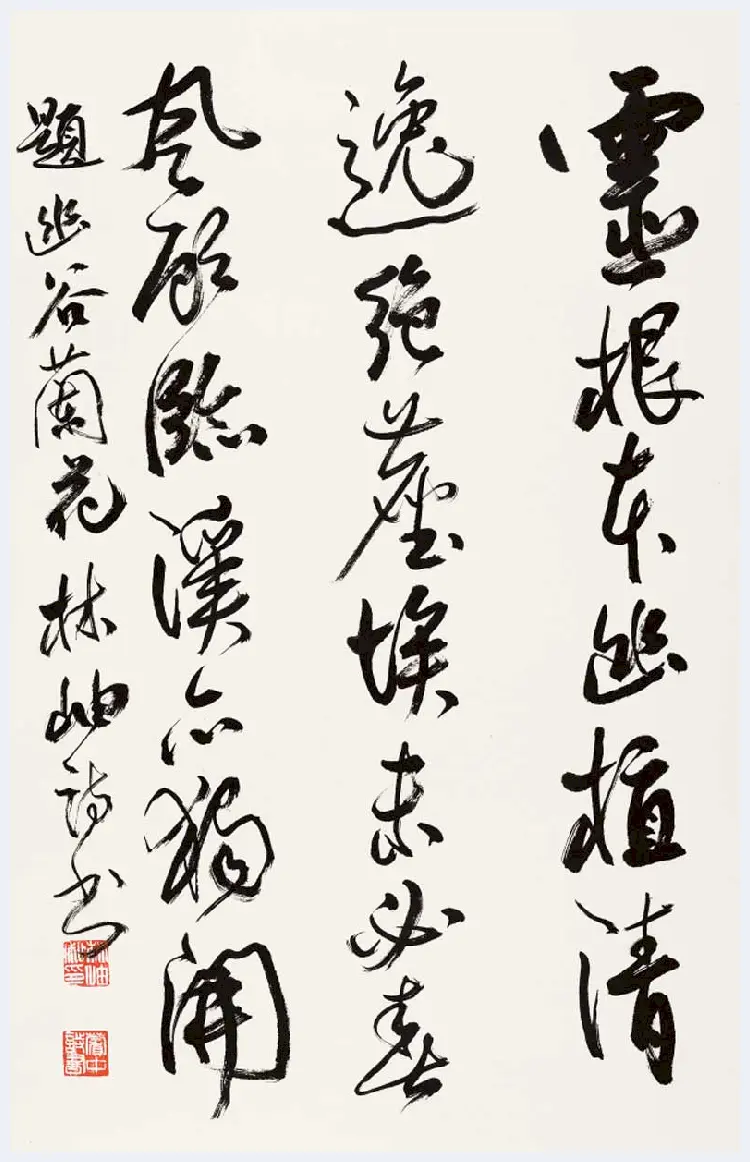 靈根本幽植清
逸絕塵埃未必春
風顧臨溪亦獨開
題幽谷蘭花林岫詩書
林岫